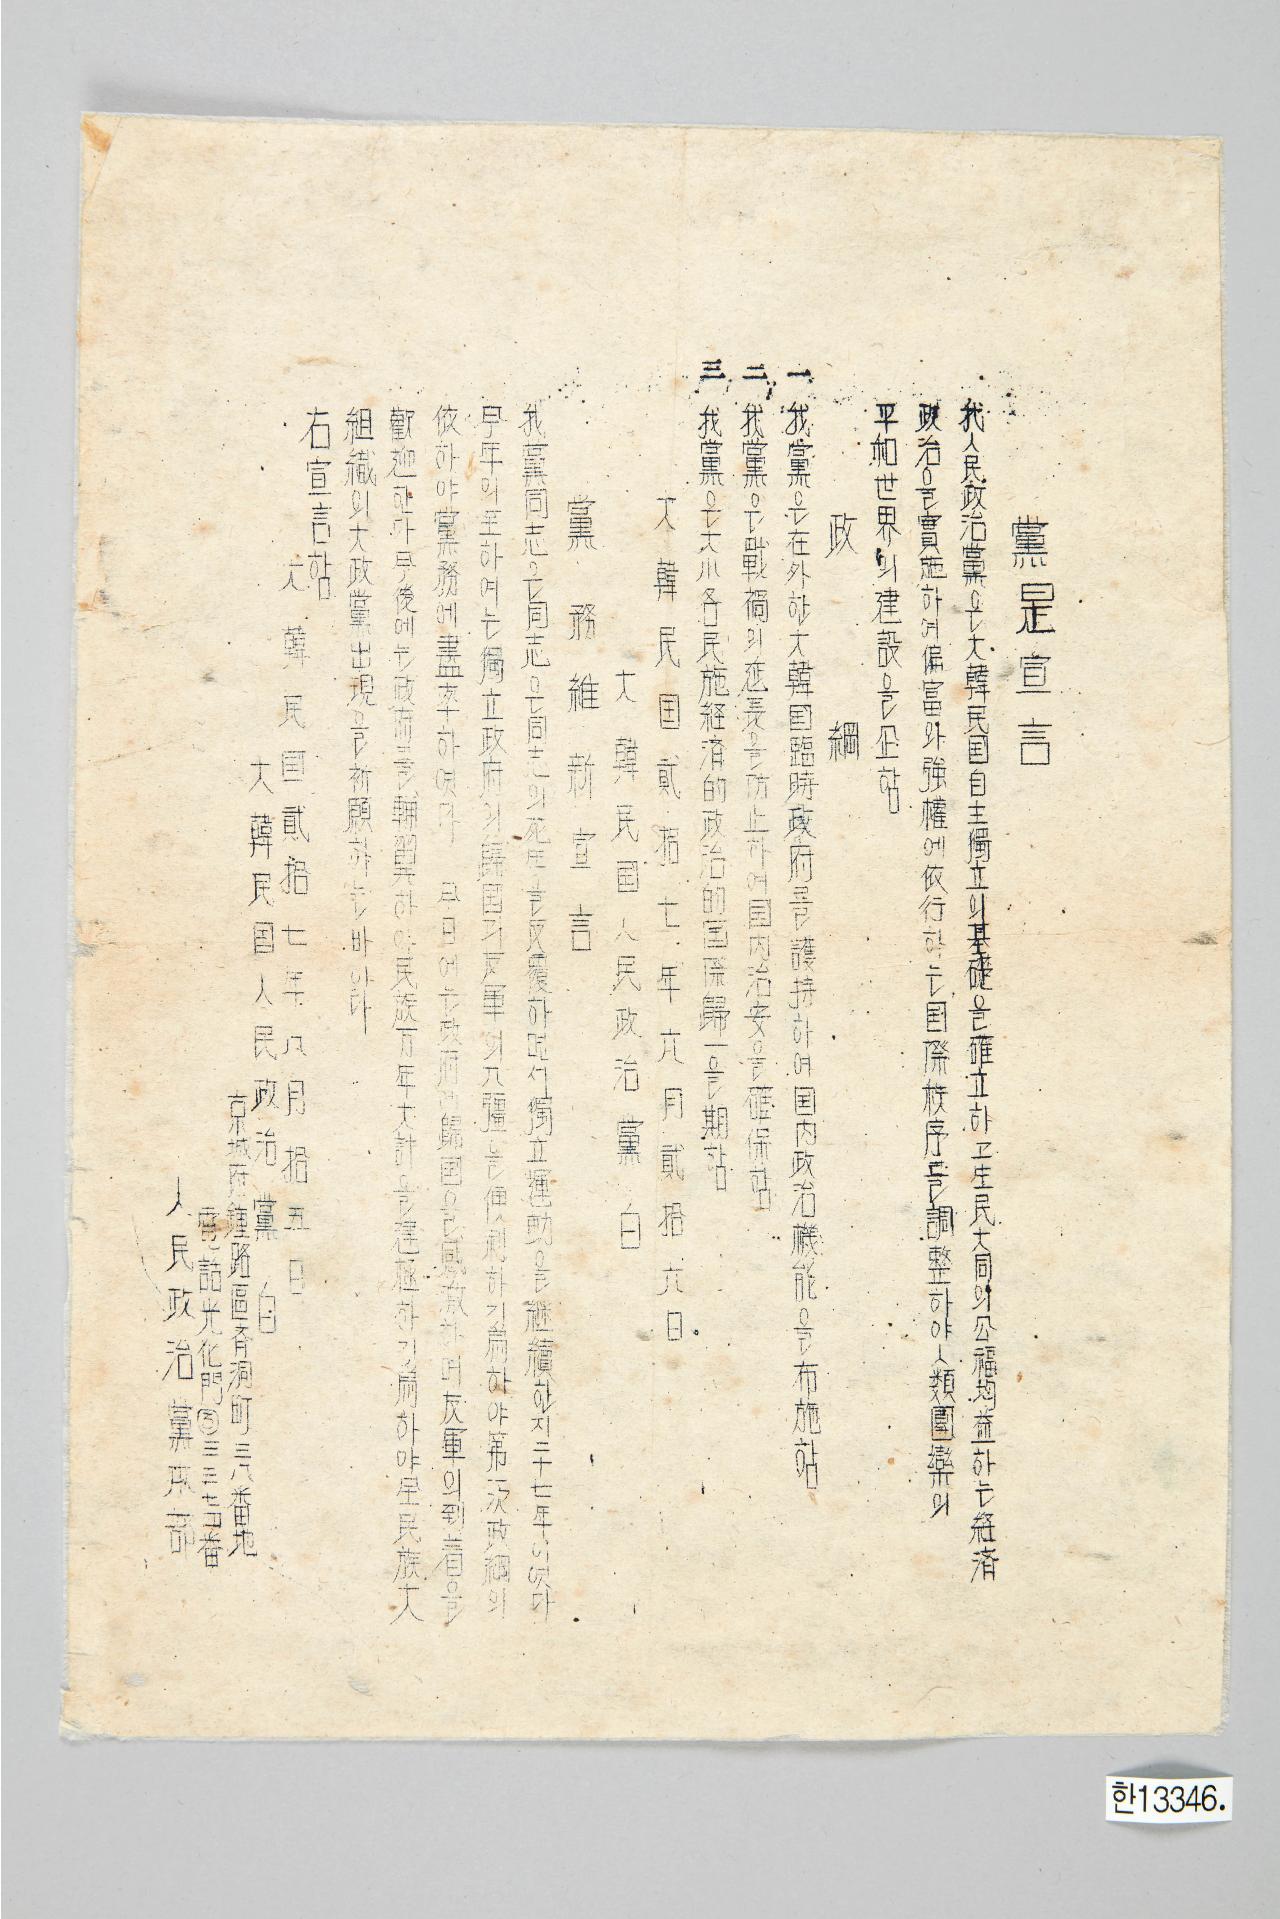 黨是宣言
我人民政治黨은大韓民国自主獨立의基礎을確立하고生民大同의公福均益하는経済
政治을實施하여偏富와強權에依行하는国際秩序를調整하야人類團欒의
平和世界의建設을企함
政綱
一 我黨은在外한大韓国臨時政府를護持하여国内政治機能을布施함
二 我黨은戰禍의延長을防止하여国内治安을確保함
三 我黨은大小各民施経済的政治的国際歸一을期함
大韓民国貳拾七年六月貳拾六日
大韓民国人民政治黨白
黨務維新宣言
我黨同志은同志의死生을反覆하면서獨立運動을継續한지二十七年이엿다
早年의至하여는獨立政府의歸国과友軍의入疆을便利하기爲하야第一次政綱의
依하야黨務에盡率하엿다 今日여는政府의歸国을感激하며友軍의到着을
歡迎한다早後에는政府를輔翼하야民族万年大計을建極하기爲하야全民族大
組織의大政黨出現을祈願하는바이라
右宣言함
大韓民国貳拾七年八月拾五日
大韓民国人民政治黨白
京城府鍾路區斉洞町三八番地
電話光化門③三三七番
人民政治黨本部
한13346.